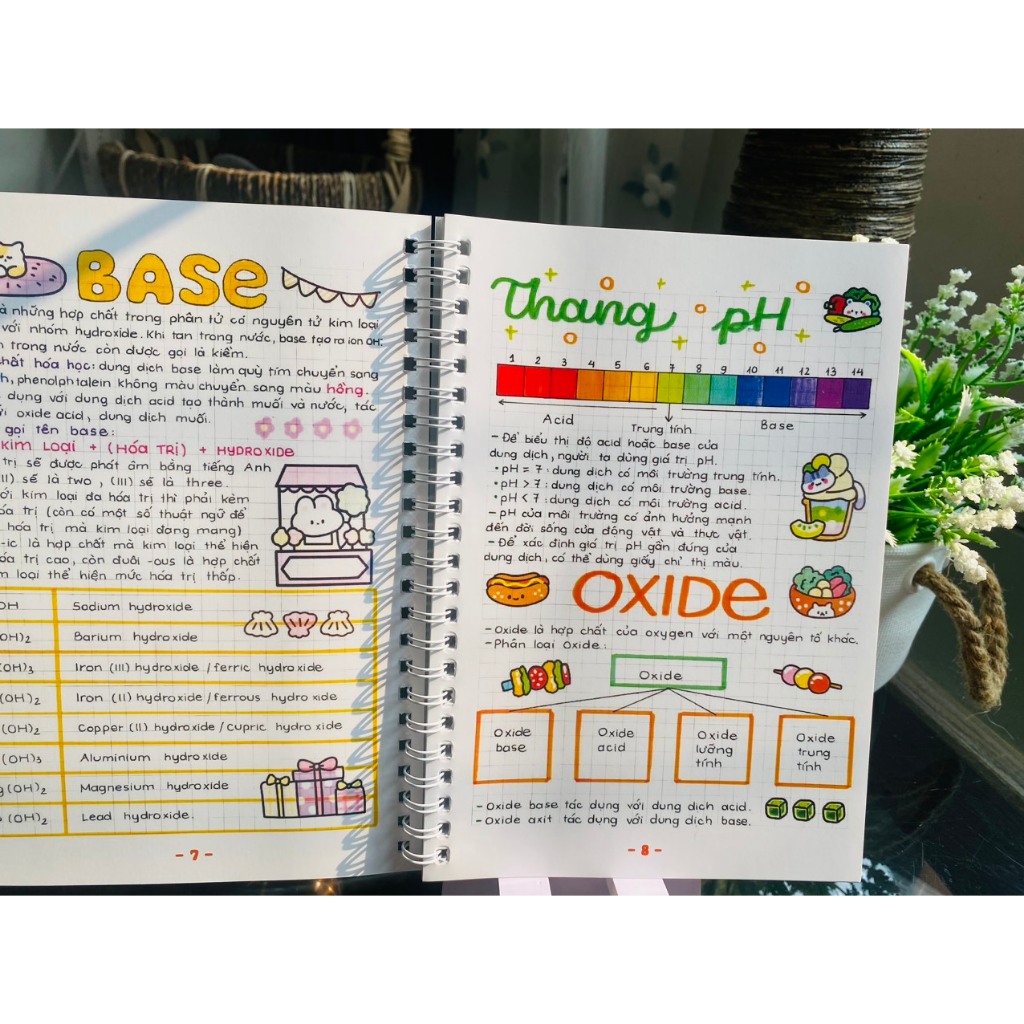 BASE
những hợp chất trong phân tử có nguyên tử kim loại
với nhóm hydroxide. Khi tan trong nước, base tạo ra ion OH.
trong nước còn được gọi là kiềm.
hất hóa học: dung dịch base làm quỳ tím chuyển sang
h, phenolphtalein không màu chuyển sang màu hồng.
dụng với dung dịch acid tạo thành muối và nước, tác
oxide acid, dung dịch muối.
gọi tên base:
KIM LOẠI + (HÓA TRỊ) + HYDROXIDE
trị sẽ được phát âm bằng tiếng Anh
II) sẽ là two, (III) sẽ là three.
ới kim loại đa hóa trị thì phải kèm
óa trị (còn có một số thuật ngữ để
hóa trị mà kim loại đang mang)
-ic là hợp chất mà kim loại thể hiện
óa trị cao, còn đuôi -ous là hợp chất
m loại thể hiện mức hóa trị thấp.
OH Sodium hydroxide
OH)2 Barium hydroxide
(OH)3 Iron (III) hydroxide / ferric hydroxide
(OH)2 Iron (II) hydroxide / ferrous hydroxide
(OH)2 Copper (II) hydroxide / cupric hydroxide
(OH)3 Aluminium hydroxide
g(OH)2 Magnesium hydroxide
(OH)2 Lead hydroxide.
- 7 -
Thang pH
1 2 3 4 5 6 7 8 9 10 11 12 13 14
Acid Trung tính Base
- Để biểu thị độ acid hoặc base của
dung dịch, người ta dùng giá trị pH.
• pH = 7 : dung dịch có môi trường trung tính.
• pH > 7 : dung dịch có môi trường base.
• pH < 7 : dung dịch có môi trường acid.
- pH của môi trường có ảnh hưởng mạnh
đến đời sống của động vật và thực vật.
- Để xác định giá trị pH gần đúng của
dung dịch, có thể dùng giấy chỉ thị màu.
OXIDE
- Oxide là hợp chất của oxygen với một nguyên tố khác.
- Phân loại Oxide :
Oxide
Oxide base
Oxide acid
Oxide lưỡng tính
Oxide trung tính
- Oxide base tác dụng với dung dịch acid.
- Oxide axit tác dụng với dung dịch base.
- 8 -